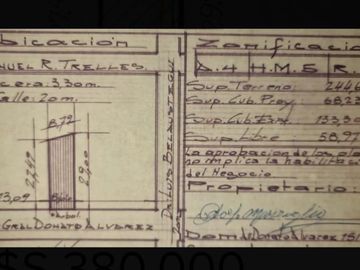 bicación
NUEL R. TRELLES
cera: 3,30m.
alle: 20m.
8,72
22,69
29,00
13,09
Arbol.
GRAL DONATO ALVAREZ
Dr. LUIS BELAUSTEGUI
Zonificació
A.4 H.M.5 R.
Sup. Terreno: 244,6
Sup. Cub. Proy. 68,2
Sup. Cub. Exis. 133,3
Sup. Libre 58,9
La aprobacion de los pla
no implica la habilit
del Negocio
Propietario:
Dom: Donato Alvarez 151
$ 380.000